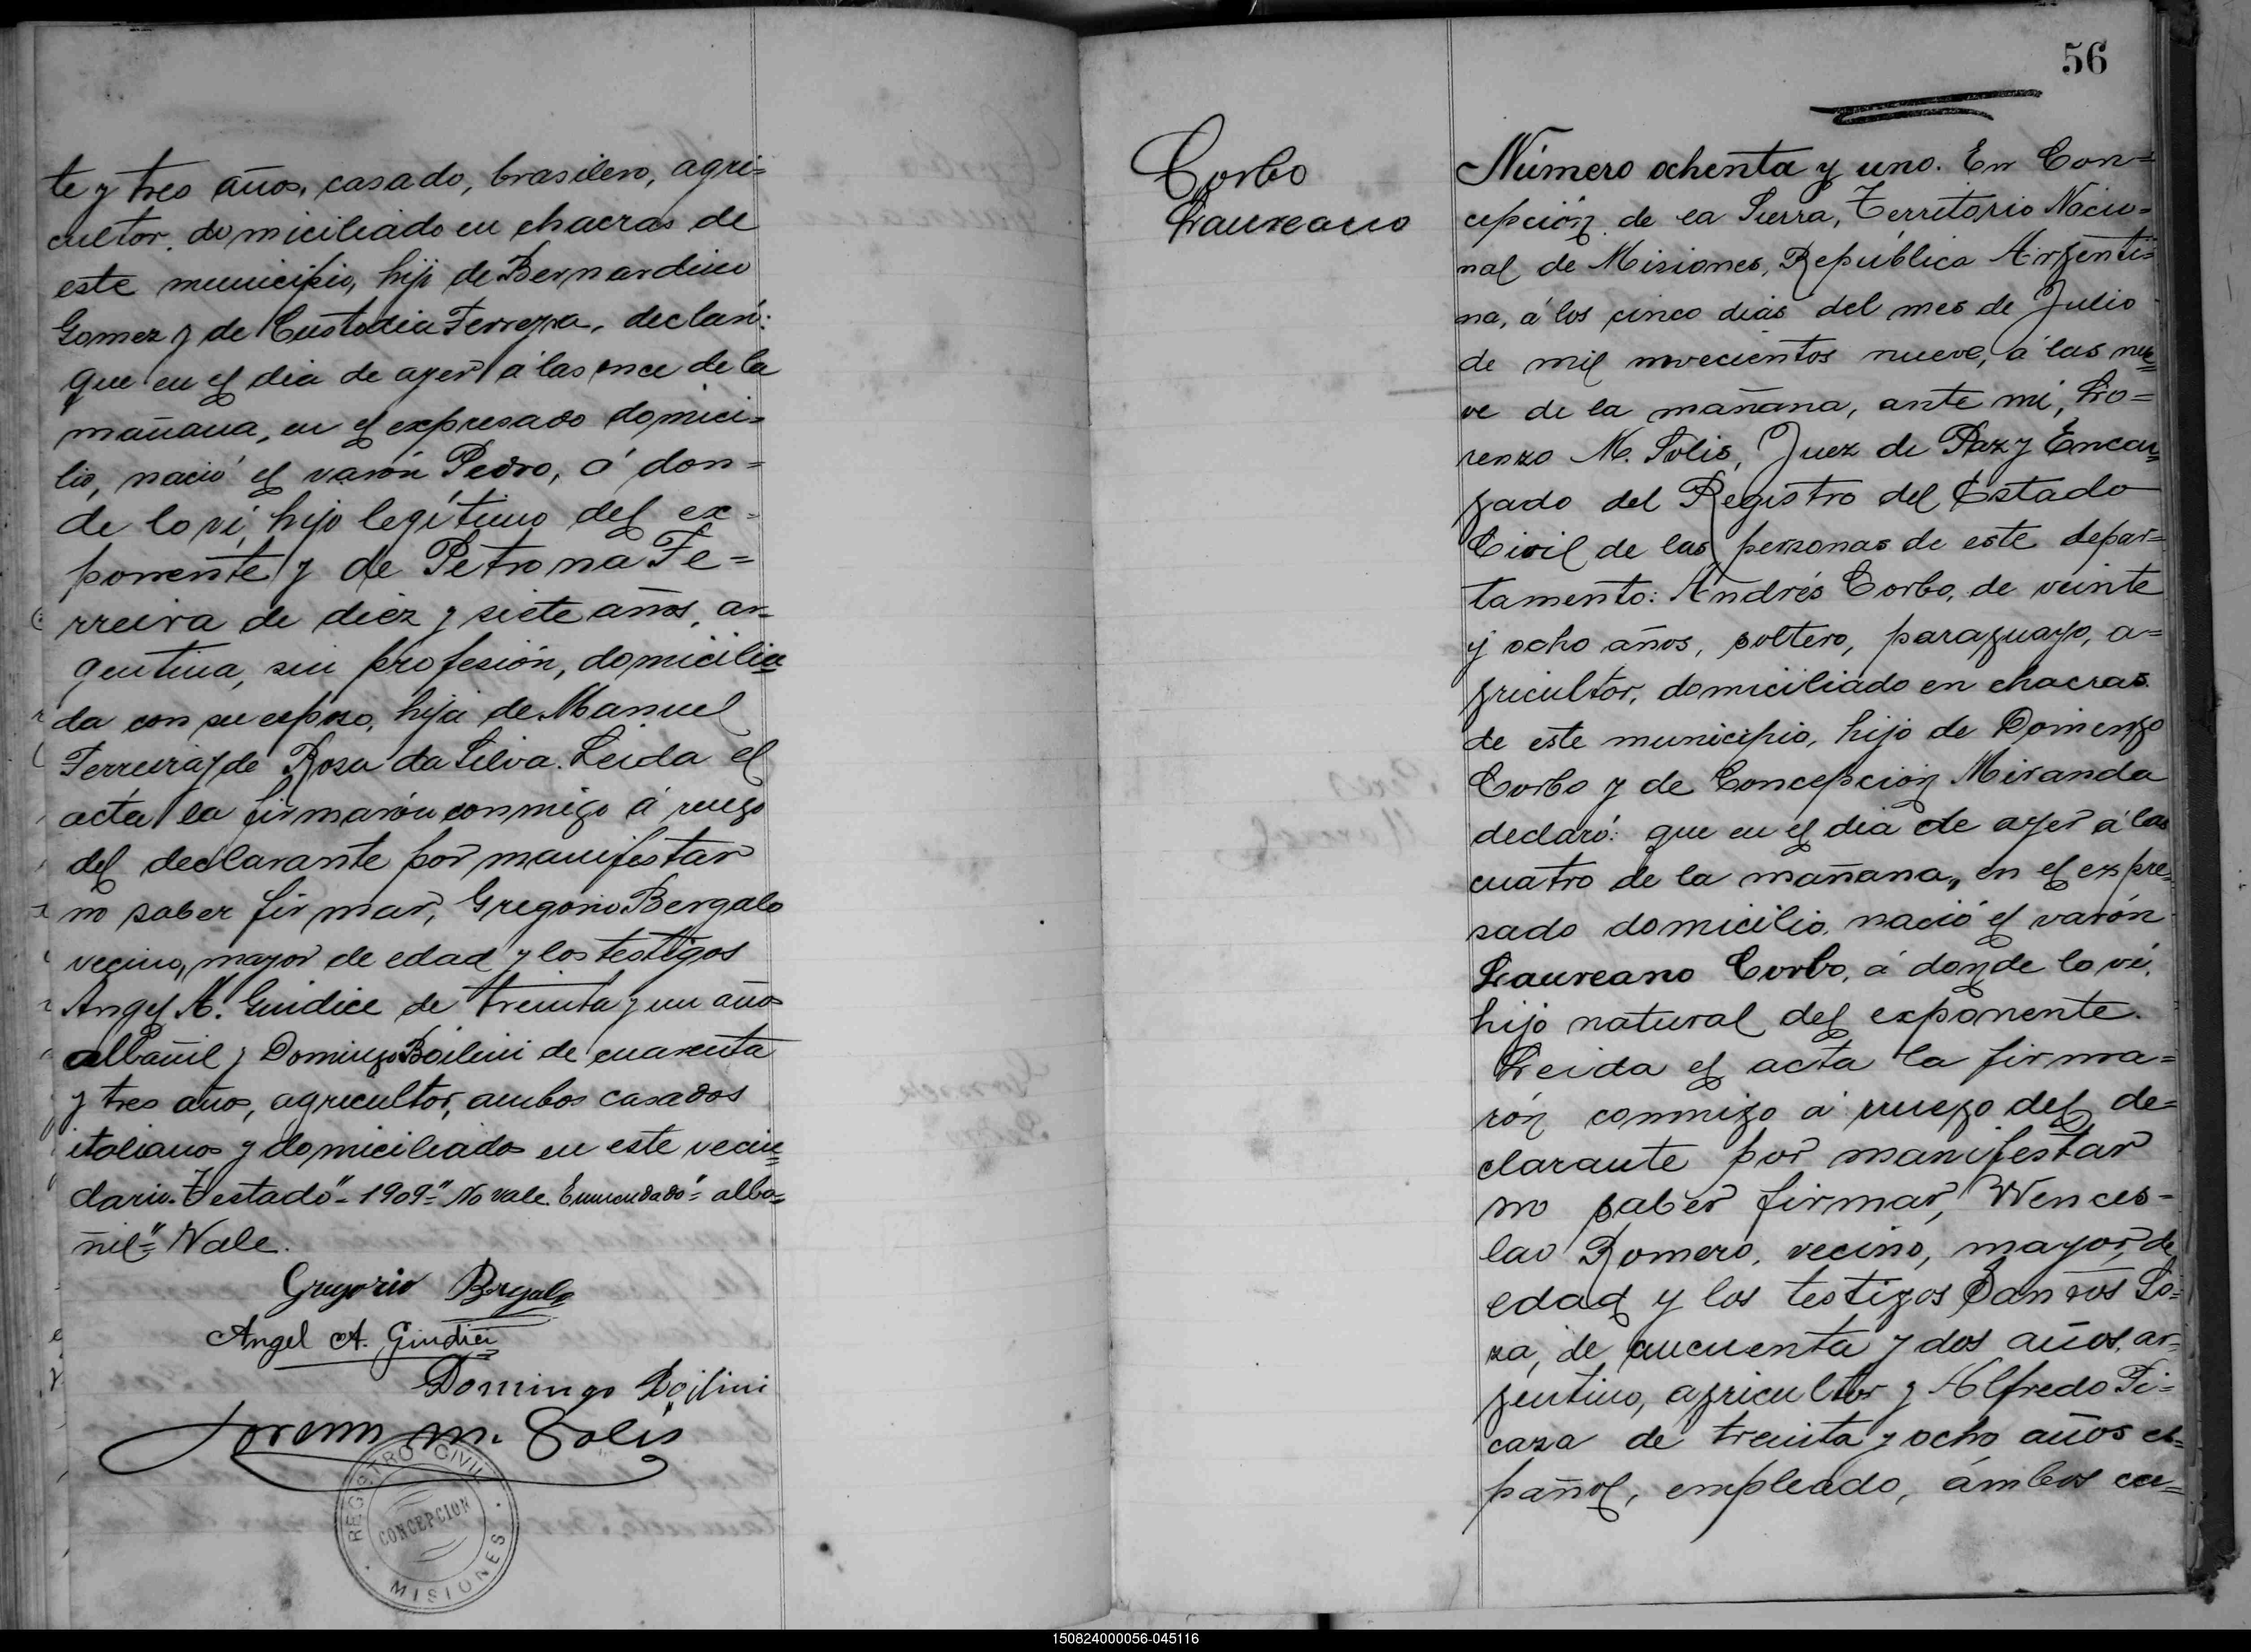 te y tres años, casado, brasilero, agri=
cultor, domiciliado en chacras de
este municipio, hijo de Bernardino
Gomez y de Custodia Ferreyra, declaró:
que en el dia de ayer á las once de la
mañana, en el expresado domici=
lio, nació el varón Pedro, á don=
de lo ví, hijo legítimo del ex=
ponente y de Petrona Fe=
rreira de diez y siete años, ar=
gentina, sin profesión, domicilia=
da con su esposo, hija de Manuel
Ferreira y de Rosa da Silva. Leida el
acta la firmarón conmigo á ruego
del declarante por manifestar
no saber firmar, Gregorio Bergalo
vecino, mayor de edad y los testigos
Angel A. Giudice de treinta y un años
albañil y Domingo Boilini de cuarenta
y tres años, agricultor, ambos casados
italianos y domiciliados en este vecin=
dario. Testado "- 1909-" No vale. Enmendado "- alba=
ñil-" Vale.
Gregorio Bergalo
Angel A. Giudici
Domingo Boilini
Lorenzo M. Solis
REGISTRO CIVIL
CONCEPCION
MISIONES
56
Corbo
Laureano
Número ochenta y uno. En Con=
cepción de la Sierra, Territorio Nacio=
nal de Misiones, República Argenti=
na, á los cinco dias del mes de Julio
de mil novecientos nueve, á las nue=
ve de la mañana, ante mi, Lo=
renzo M. Solis, Juez de Paz y Encar=
gado del Registro del Estado
Civil de las personas de este depar=
tamento: Andrés Corbo, de veinte
y ocho años, soltero, paraguayo, a=
gricultor, domiciliado en chacras
de este municipio, hijo de Domingo
Corbo y de Concepción Miranda
declaró: que en el dia de ayer á las
cuatro de la mañana, en el expre=
sado domicilio, nació el varón
Laureano Corbo, á donde lo ví,
hijo natural del exponente.
Leida el acta la firma=
rón conmigo á ruego del de=
clarante por manifestar
no saber firmar, Wences=
lao Romero, vecino, mayor de
edad y los testigos Santos So=
za, de cincuenta y dos años, ar=
gentino, agricultor y Alfredo Ti=
caza de treinta y ocho años es=
pañol, empleado, ámbos ca=
150824000056-045116